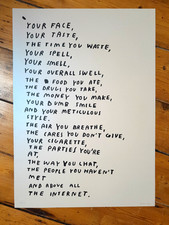 YOUR FACE,
YOUR TASTE,
THE TIME YOU WASTE,
YOUR SPELL,
YOUR SMELL,
YOUR OVERALL SWELL,
THE FOOD YOU ATE,
THE DRUGS YOU TAKE,
THE MONEY YOU MAKE,
YOUR DUMB SMILE
AND YOUR METICULOUS
STYLE.
THE AIR YOU BREATHE,
THE CARES YOU DON'T GIVE,
YOUR CIGARETTE,
THE PARTIES YOU'RE
AT,
THE WAY YOU CHAT,
THE PEOPLE YOU HAVEN'T
MET
AND ABOVE ALL
THE INTERNET.